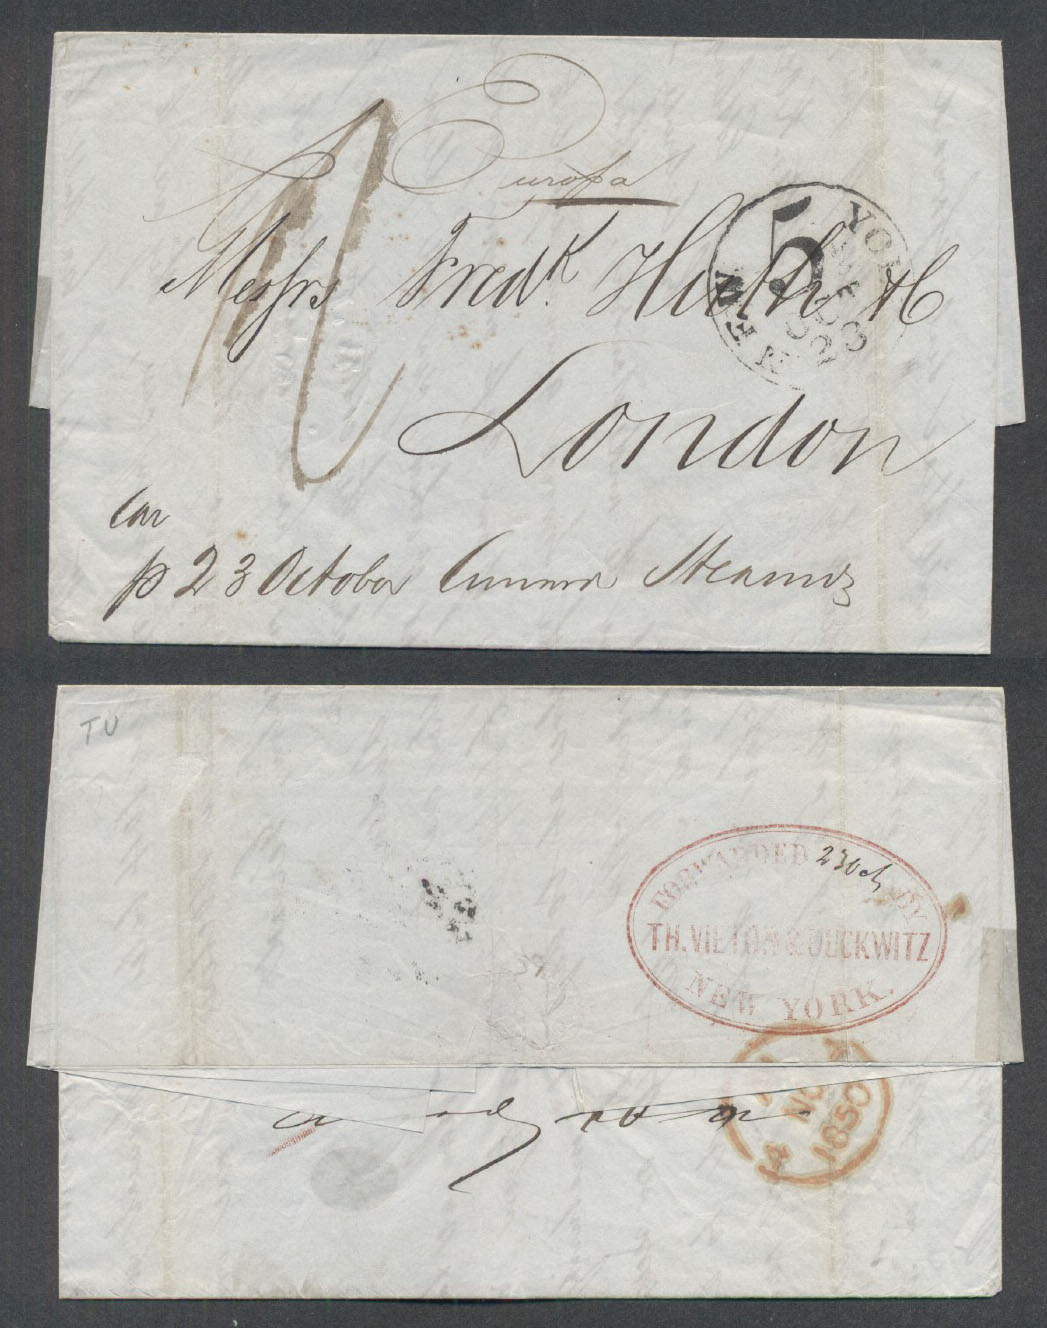 Europa
Messrs Fredk. Huth & C
London
5
NEW YORK
p 23 October Cunard Steamer
TU
FORWARDED BY
23 Oct
TH. VIETOR & DUCKWITZ
NEW YORK.
4 NO 4
1850